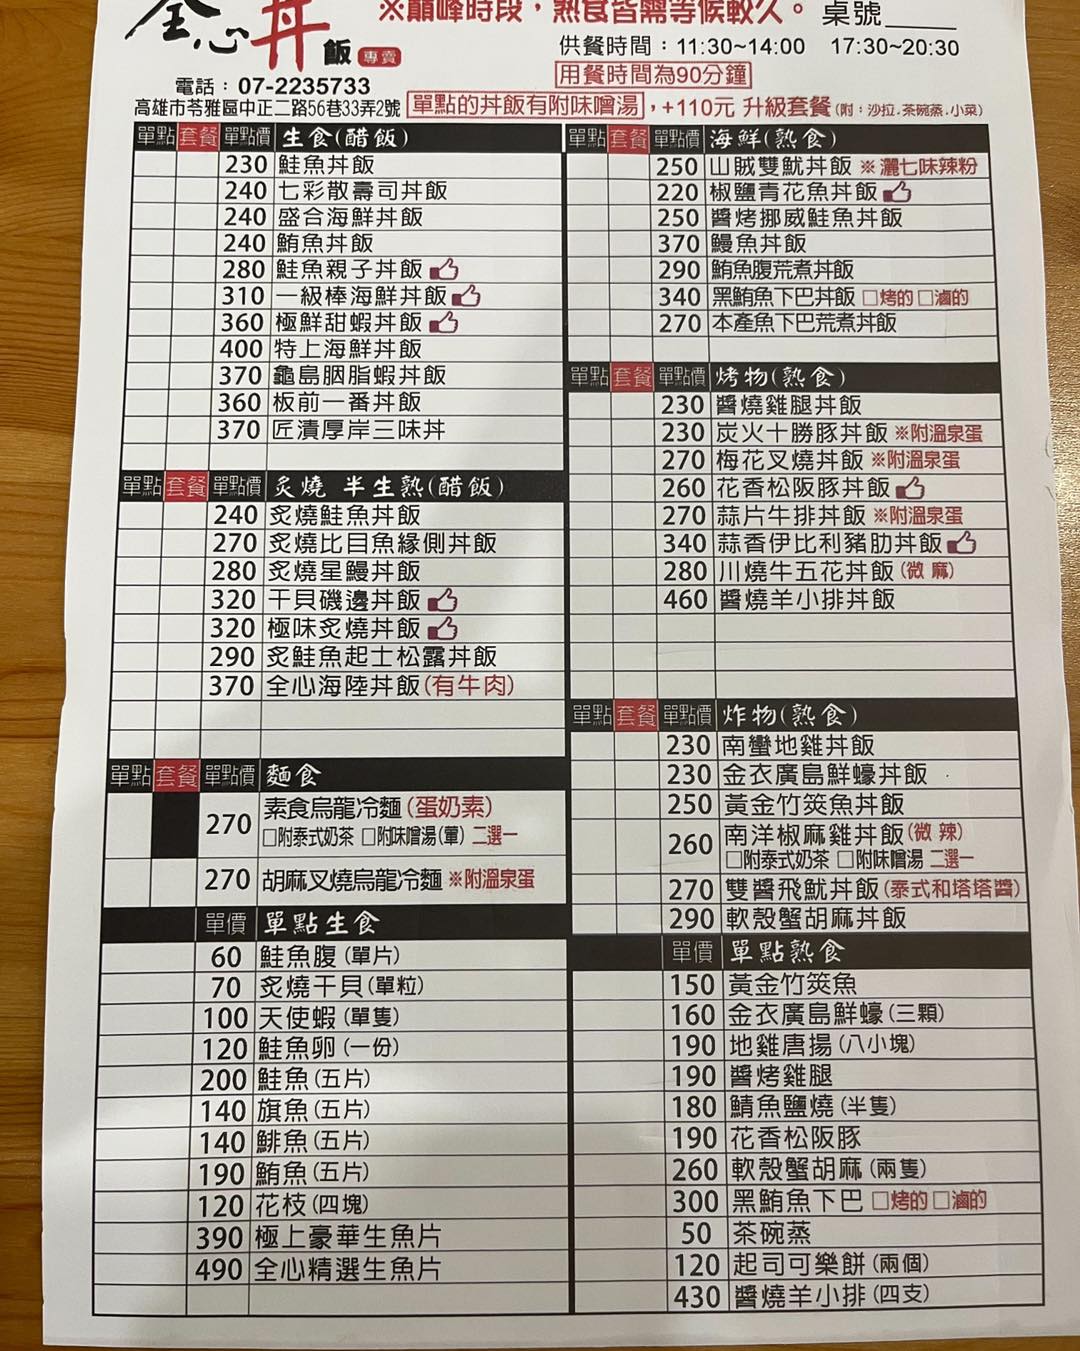 全心丼飯 專賣
※巔峰時段，熟食皆需等候較久。 桌號
供餐時間：11:30~14:00 17:30~20:30
用餐時間為90分鐘
電話：07-2235733
高雄市苓雅區中正二路56巷33弄2號
單點的丼飯有附味噌湯，+110元 升級套餐(附：沙拉.茶碗蒸.小菜)
單點 套餐 單點價 生食(醋飯)
230 鮭魚丼飯
240 七彩散壽司丼飯
240 盛合海鮮丼飯
240 鮪魚丼飯
280 鮭魚親子丼飯
310 一級棒海鮮丼飯
360 極鮮甜蝦丼飯
400 特上海鮮丼飯
370 龜島胭脂蝦丼飯
360 板前一番丼飯
370 匠漬厚岸三味丼
單點 套餐 單點價 炙燒 半生熟(醋飯)
240 炙燒鮭魚丼飯
270 炙燒比目魚緣側丼飯
280 炙燒星鰻丼飯
320 干貝磯邊丼飯
320 極味炙燒丼飯
290 炙鮭魚起士松露丼飯
370 全心海陸丼飯(有牛肉)
單點 套餐 單點價 麵食
270 素食烏龍冷麵(蛋奶素)
□附泰式奶茶 □附味噌湯(葷) 二選一
270 胡麻叉燒烏龍冷麵 ※附溫泉蛋
單價 單點生食
60 鮭魚腹(單片)
70 炙燒干貝(單粒)
100 天使蝦(單隻)
120 鮭魚卵(一份)
200 鮭魚(五片)
140 旗魚(五片)
140 鯡魚(五片)
190 鮪魚(五片)
120 花枝(四塊)
390 極上豪華生魚片
490 全心精選生魚片
單點 套餐 單點價 海鮮(熟食)
250 山賊雙魷丼飯 ※灑七味辣粉
220 椒鹽青花魚丼飯
250 醬烤挪威鮭魚丼飯
370 鰻魚丼飯
290 鮪魚腹荒煮丼飯
340 黑鮪魚下巴丼飯 □烤的 □滷的
270 本產魚下巴荒煮丼飯
單點 套餐 單點價 烤物(熟食)
230 醬燒雞腿丼飯
230 炭火十勝豚丼飯 ※附溫泉蛋
270 梅花叉燒丼飯 ※附溫泉蛋
260 花香松阪豚丼飯
270 蒜片牛排丼飯 ※附溫泉蛋
340 蒜香伊比利豬肋丼飯
280 川燒牛五花丼飯(微 麻)
460 醬燒羊小排丼飯
單點 套餐 單點價 炸物(熟食)
230 南蠻地雞丼飯
230 金衣廣島鮮蠔丼飯
250 黃金竹筴魚丼飯
260 南洋椒麻雞丼飯(微 辣)
□附泰式奶茶 □附味噌湯 二選一
270 雙醬飛魷丼飯(泰式和塔塔醬)
290 軟殼蟹胡麻丼飯
單價 單點熟食
150 黃金竹筴魚
160 金衣廣島鮮蠔(三顆)
190 地雞唐揚(八小塊)
190 醬烤雞腿
180 鯖魚鹽燒(半隻)
190 花香松阪豚
260 軟殼蟹胡麻(兩隻)
300 黑鮪魚下巴 □烤的 □滷的
50 茶碗蒸
120 起司可樂餅(兩個)
430 醬燒羊小排(四支)